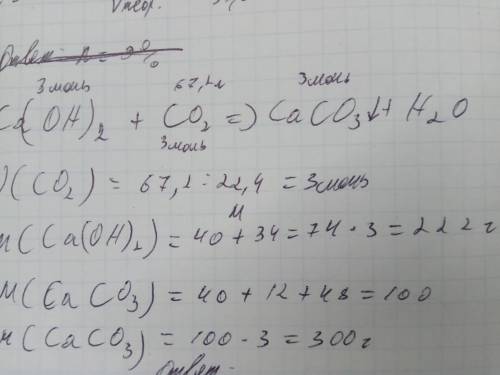 Vтеор.
Ответ: n = 9%
3 моль 67,2л 3 моль
Ca(OH)2 + CO2 => CaCO3↓ + H2O
3 моль
)(CO2) = 67,2 : 22,4 = 3 моль
M
m(Ca(OH)2) = 40 + 34 = 74 · 3 = 222 г
M(CaCO3) = 40 + 12 + 48 = 100
m(CaCO3) = 100 · 3 = 300 г
Ответ.